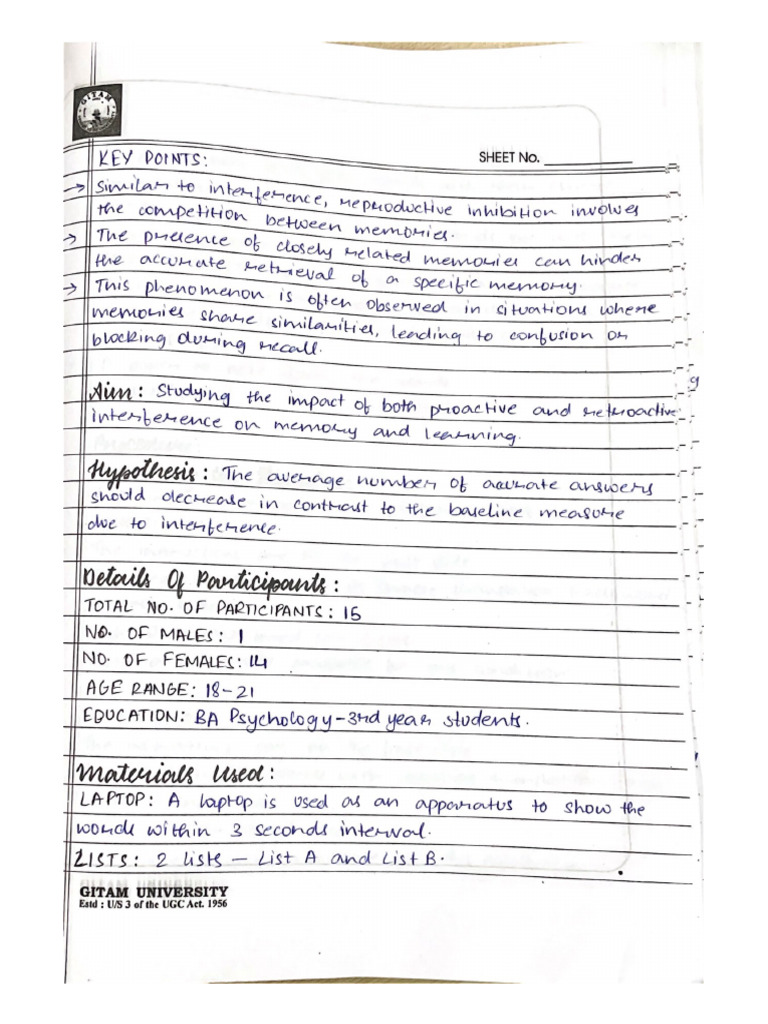 GITAM
SHEET No.
KEY POINTS:
→ Similar to interference, reproductive inhibition involves
the competition between memories.
→ The presence of closely related memories can hinder
the accurate retrieval of a specific memory.
→ This phenomenon is often observed in situations where
memories share similarities, leading to confusion or
blocking during recall.
Aim: Studying the impact of both proactive and retroactive
interference on memory and learning.
Hypothesis: The average number of accurate answers
should decrease in contrast to the baseline measure
due to interference.
Details Of Participants:
TOTAL NO. OF PARTICIPANTS: 15
NO. OF MALES: 1
NO. OF FEMALES: 14
AGE RANGE: 18-21
EDUCATION: BA Psychology-3rd year students.
Materials Used:
LAPTOP: A laptop is used as an apparatus to show the
words within 3 seconds interval.
LISTS: 2 lists – List A and List B.
GITAM UNIVERSITY
Estd : U/S 3 of the UGC Act. 1956